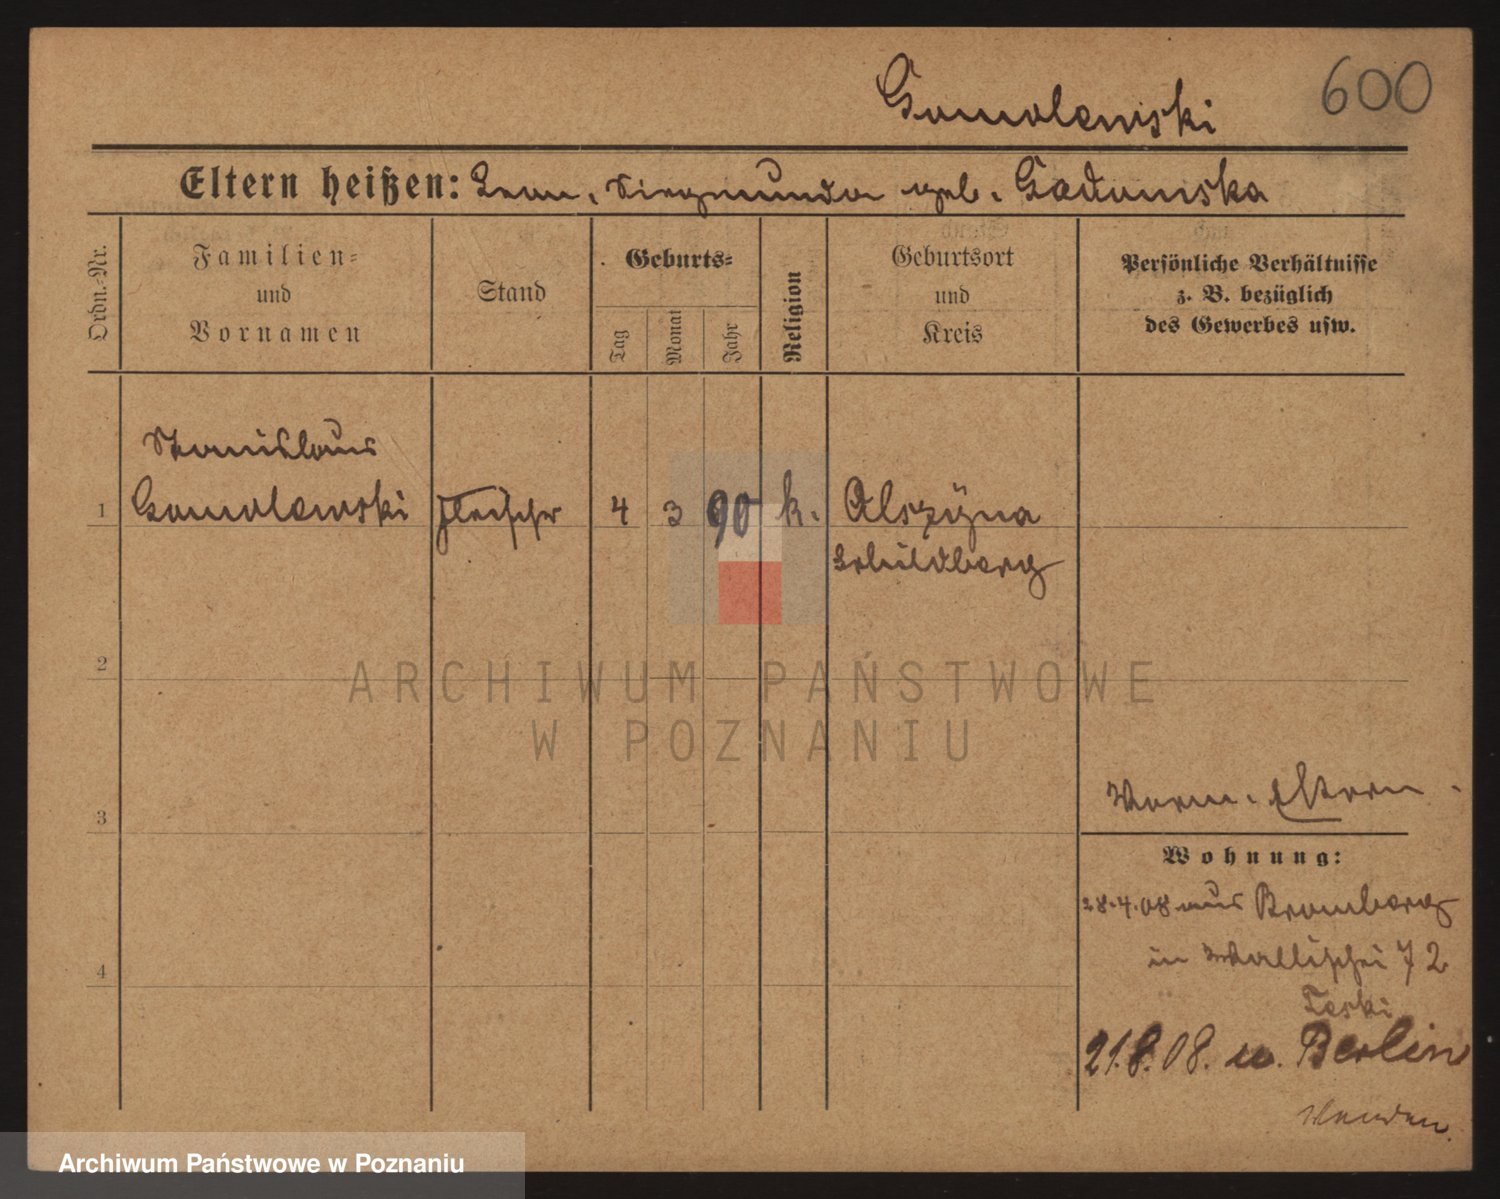 Gomolewski 600
Eltern heißen: Leon, Siegmunda geb. Gadomska
Ordn.-Nr.
Familien-
und
Vornamen
Stand
Geburts-
Tag
Monat
Jahr
Religion
Geburtsort
und
Kreis
Persönliche Verhältnisse
z. B. bezüglich
des Gewerbes usw.
Stanislaus
1 Gomolewski Fleischer 4 3 90 k. Olszyna
Schildberg
2
ARCHIWUM PAŃSTWOWE
W POZNANIU
3
Eltern
Wohnung:
28.4.08 aus Bromberg
4
in Wallischei 72
Teski
21.8.08. n. Berlin
Archiwum Państwowe w Poznaniu